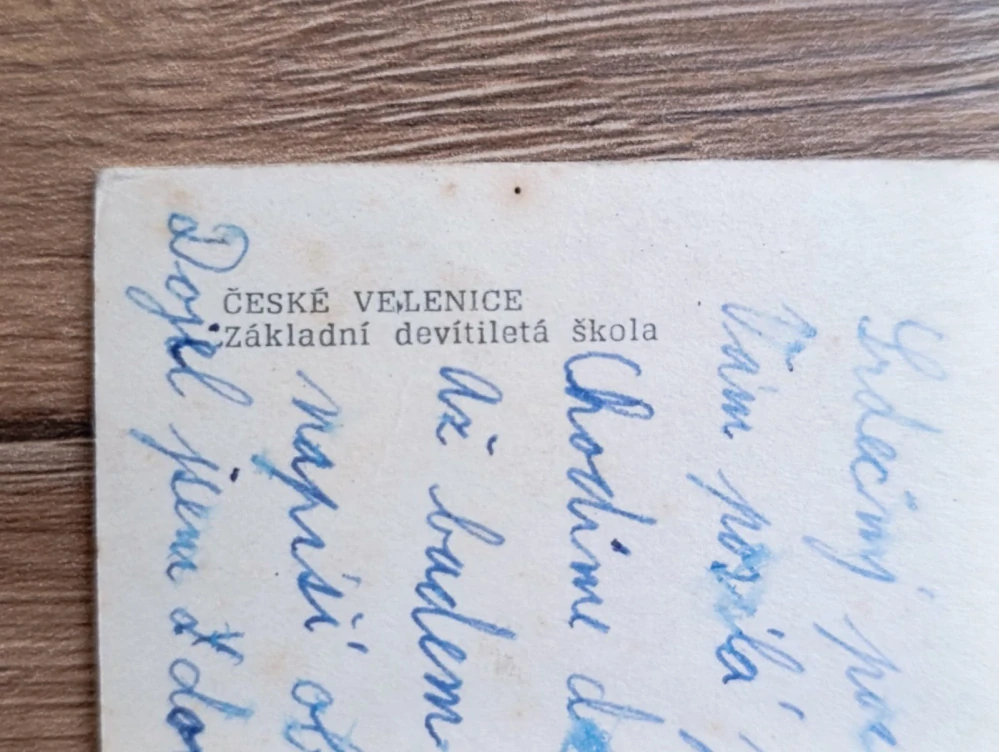 ČESKÉ VELENICE
Základní devítiletá škola
Srdečný poz
Vám posílá
Chodíme do
Až budem
napíši
Dojel jsem